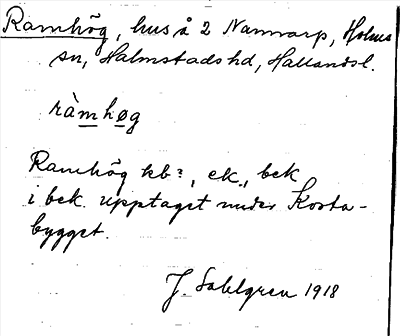 Ramhög, hus å 2 Nannarp, Holms
sn, Halmstads hd, Hallandsl.
ràmhøg
Ramhög kb?, ek., bek
i bek. upptaget under Kosta-
bygget.
J. Sahlgren 1918